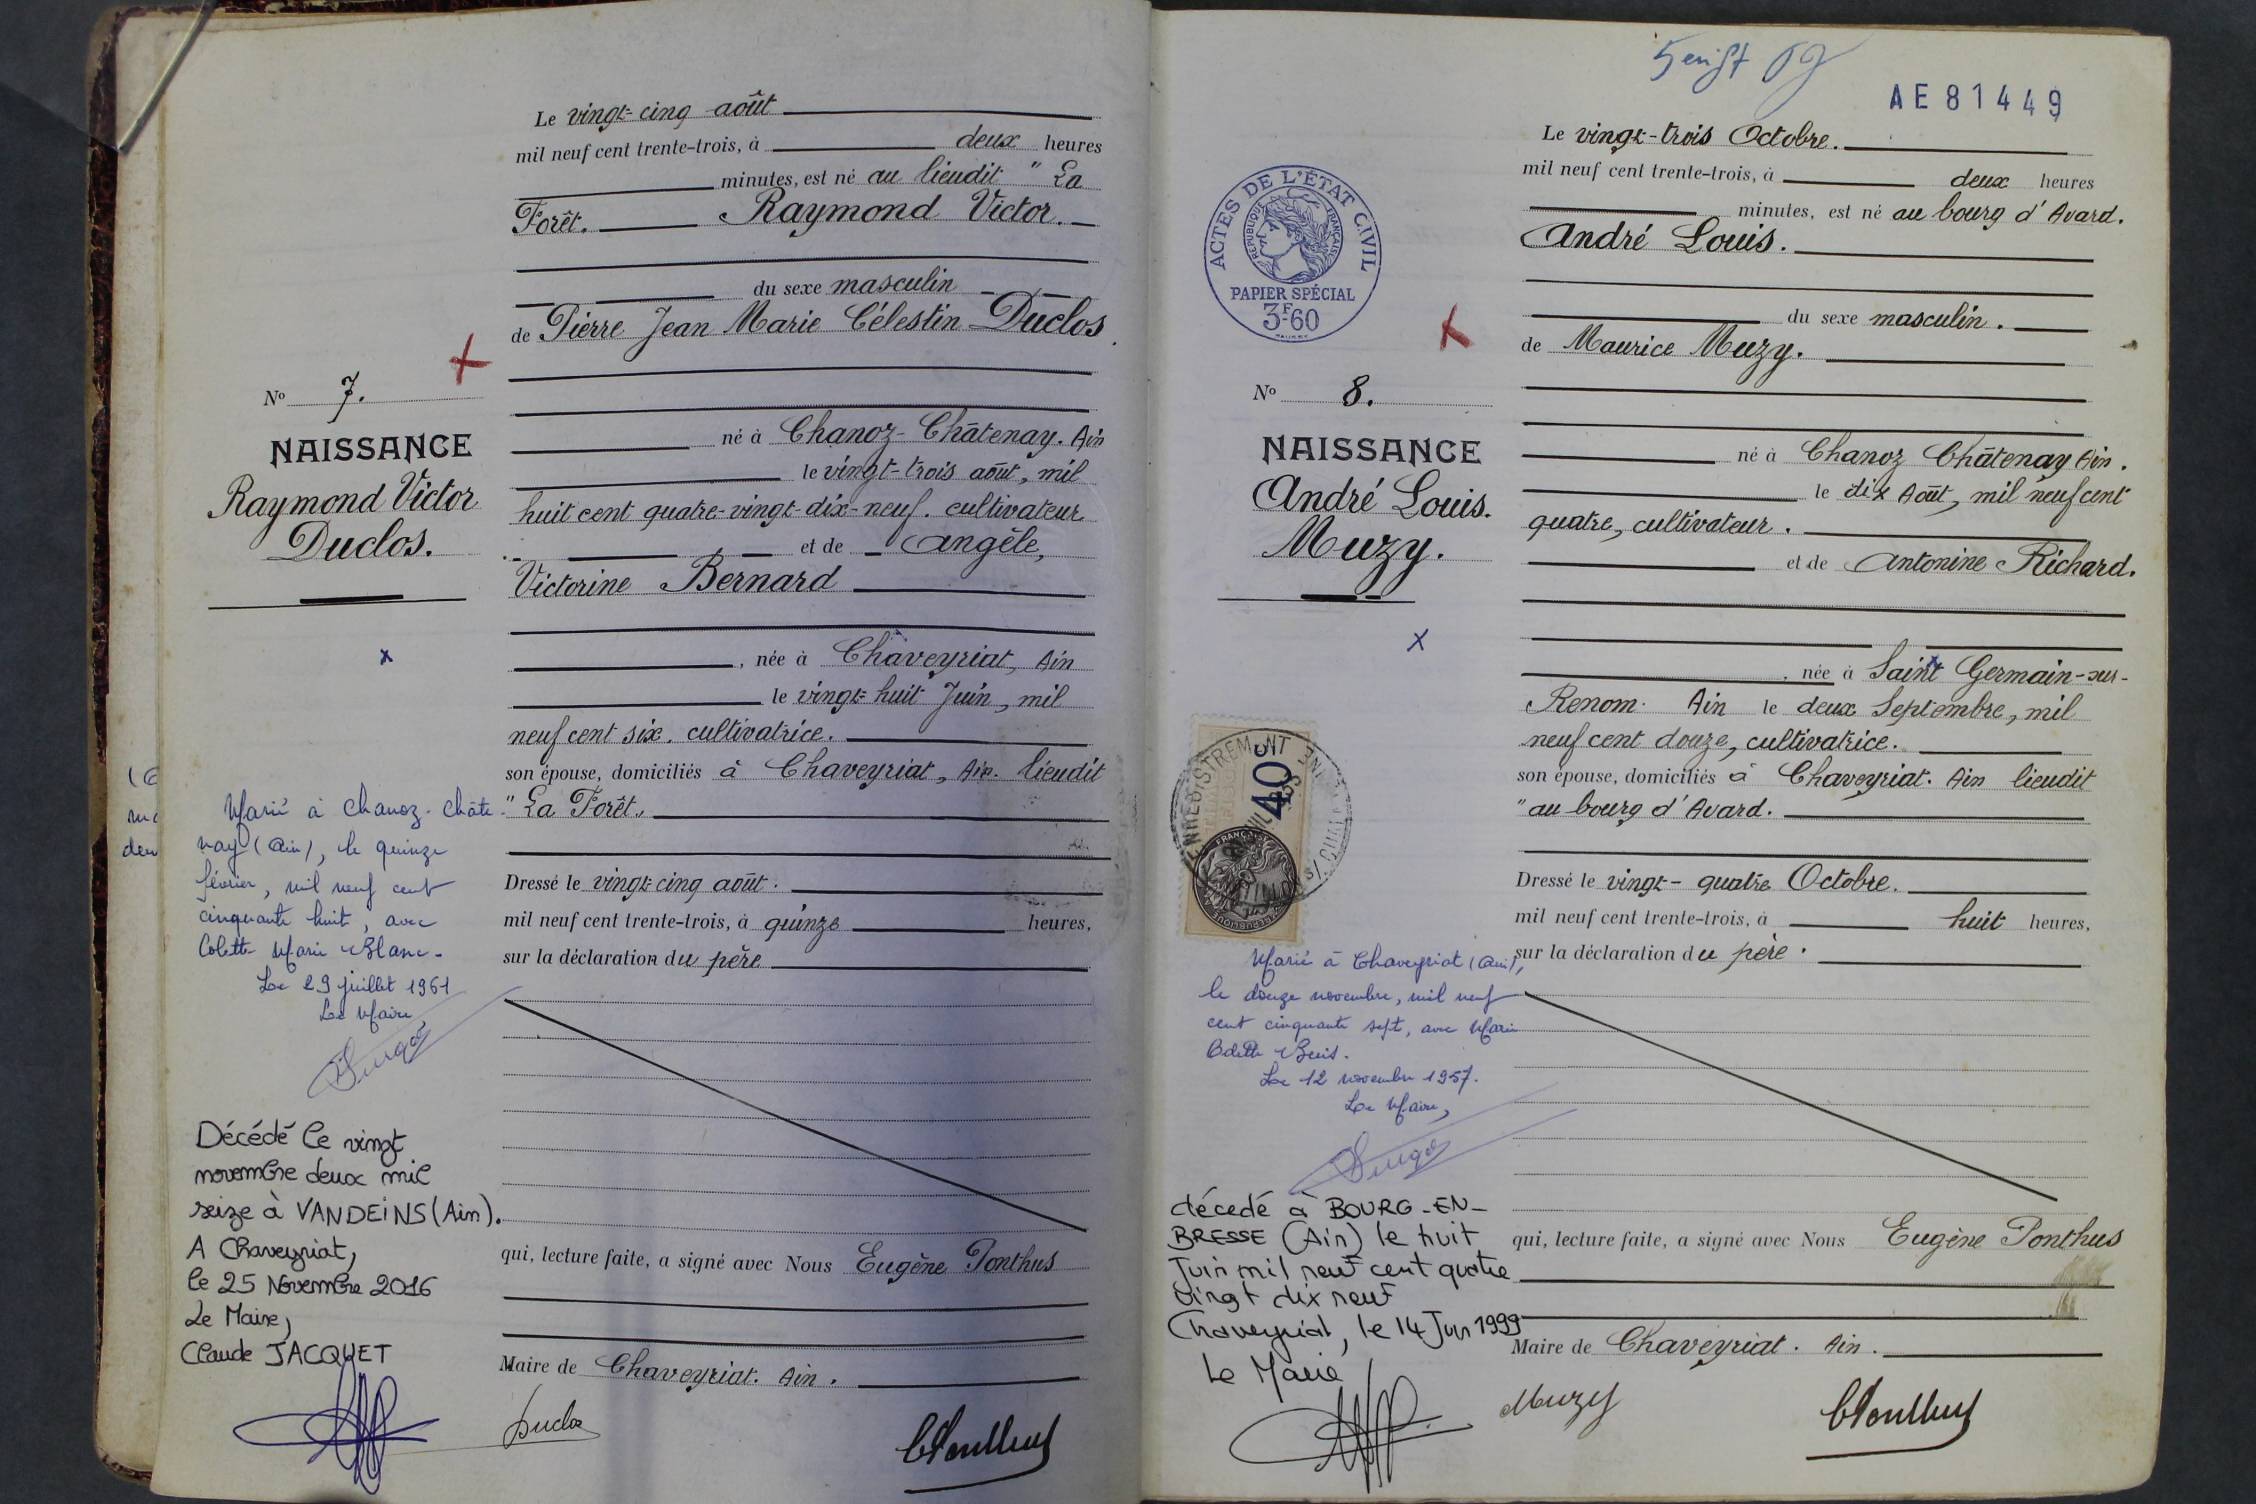 Le vingt-cinq août
mil neuf cent trente-trois, à deux heures
minutes, est né au lieudit " La
Forêt. Raymond Victor.
du sexe masculin
de Pierre Jean Marie Célestin Duclos
né à Chanoz-Châtenay. Ain
le vingt-trois août, mil
huit cent quatre-vingt-dix-neuf. cultivateur
et de Angèle,
Victorine Bernard
, née à Chaveyriat, Ain
le vingt-huit Juin, mil
neuf cent six. cultivatrice.
son épouse, domiciliés à Chaveyriat, Ain. lieudit
" La Forêt.
Dressé le vingt-cinq août.
mil neuf cent trente-trois, à quinze heures,
sur la déclaration du père
qui, lecture faite, a signé avec Nous Eugène Ponthus
Maire de Chaveyriat. Ain.
Duclos
EPonthus
No 7.
NAISSANCE
Raymond Victor
Duclos.
Marié à Chanoz-Châte-
nay (Ain), le quinze
février, mil neuf cent
cinquante huit, avec
Colette Marie Blanc.
Le 29 juillet 1961
Le Maire,
Décédé le vingt
novembre deux mil
seize à VANDEINS (Ain).
A Chaveyriat,
le 25 Novembre 2016
Le Maire,
Claude JACQUET
AE81449
Le vingt-trois Octobre.
mil neuf cent trente-trois, à deux heures
minutes, est né au bourg d'Avard.
André Louis.
du sexe masculin.
de Maurice Muzy.
né à Chanoz Châtenay Ain.
le dix Août, mil neuf cent
quatre, cultivateur.
et de Antonine Richard.
, née à Saint Germain-sur-
Renom. Ain le deux Septembre, mil
neuf cent douze, cultivatrice.
son épouse, domiciliés à Chaveyriat. Ain lieudit
"au bourg d'Avard.
Dressé le vingt-quatre Octobre.
mil neuf cent trente-trois, à huit heures,
sur la déclaration du père.
qui, lecture faite, a signé avec Nous Eugène Ponthus
Maire de Chaveyriat. Ain.
Muzy
EPonthus
ACTES DE L'ÉTAT CIVIL
RÉPUBLIQUE FRANÇAISE
PAPIER SPÉCIAL
3F60
No 8.
NAISSANCE
André Louis.
Muzy.
40
Marié à Chaveyriat (Ain),
le douze novembre, mil neuf
cent cinquante sept, avec Marie
Odette Buis.
Le 12 novembre 1957.
Le Maire,
décédé à BOURG-EN-
BRESSE (Ain) le huit
Juin mil neuf cent quatre
vingt dix neuf
Chaveyriat, le 14 Juin 1999
Le Maire